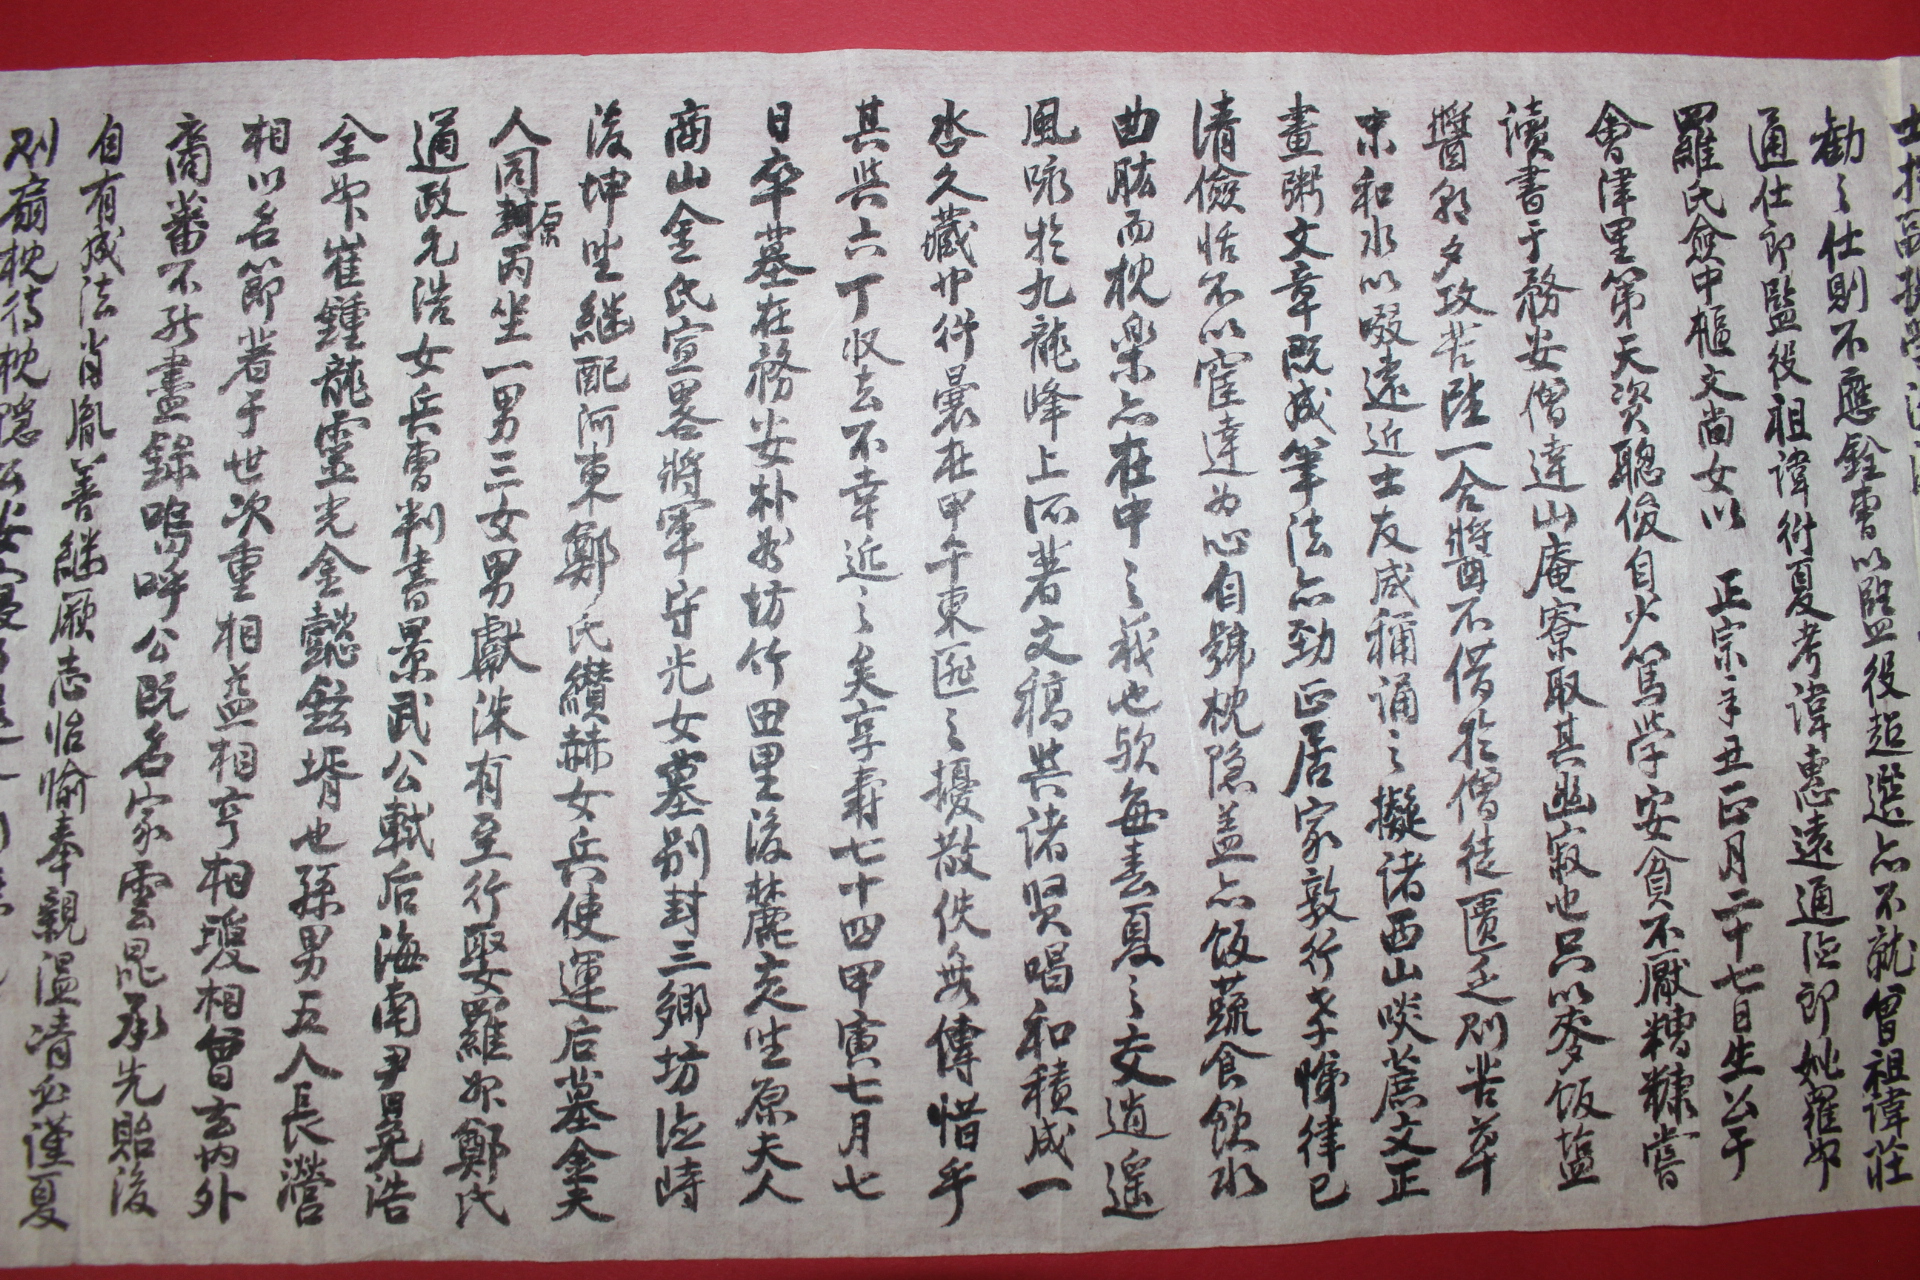 勸之仕則不應銓曹以監役超選亦不就曾祖諱莊
通仕郎監役祖諱衍夏考諱惠遠通德郎妣羅州
羅氏僉中樞文尚女以 正宗辛丑正月二十七日生公于
會津里第天資聰俊自少篤學安貧不厭糟糠嘗
讀書于務安僧達山庵寮取其幽寂也只以麥飯塩
醬朝夕攻苦陸一合醬不借於僧徒匱乏則苦草
末和水以啜遠近士友咸稱誦之擬諸西山啖薺文正
畫粥文章旣成筆法亦勁正居家敦行孝悌律己
清儉恬不以窒達為心自號枕隐盖亦飯蔬食飲水
曲肱而枕樂亦在中之義也歟每春夏之交逍遥
風咏於九龍峰上所著文稿與諸贤唱和積成一
帙久藏巾衍曩在甲午東匪之擾散佚無傳惜乎
其與六丁收去不幸近之矣享壽七十四甲寅七月七
日卒墓在務安朴谷坊竹田里後麓亥坐原夫人
商山金氏宣畧將軍守光女墓别封三鄉坊德峙
後坤坐継配河東鄭氏纘赫女兵使運后墓金夫
人同原丙坐一男三女男獻洙有至行娶羅州鄭氏
通政允浩女兵曹判書景武公軾后海南尹冕浩
全州崔鍾龍靈光金懿鉉壻也孫男五人長瀅
相以名節著于世次重相益相亨相瓊相曾玄内外
裔蕃不能盡錄嗚呼公旣名家雲昆承先貽後
自有成法肖胤善継厥志怡愉奉親温凊必谨夏
則扇枕待枕隐公安